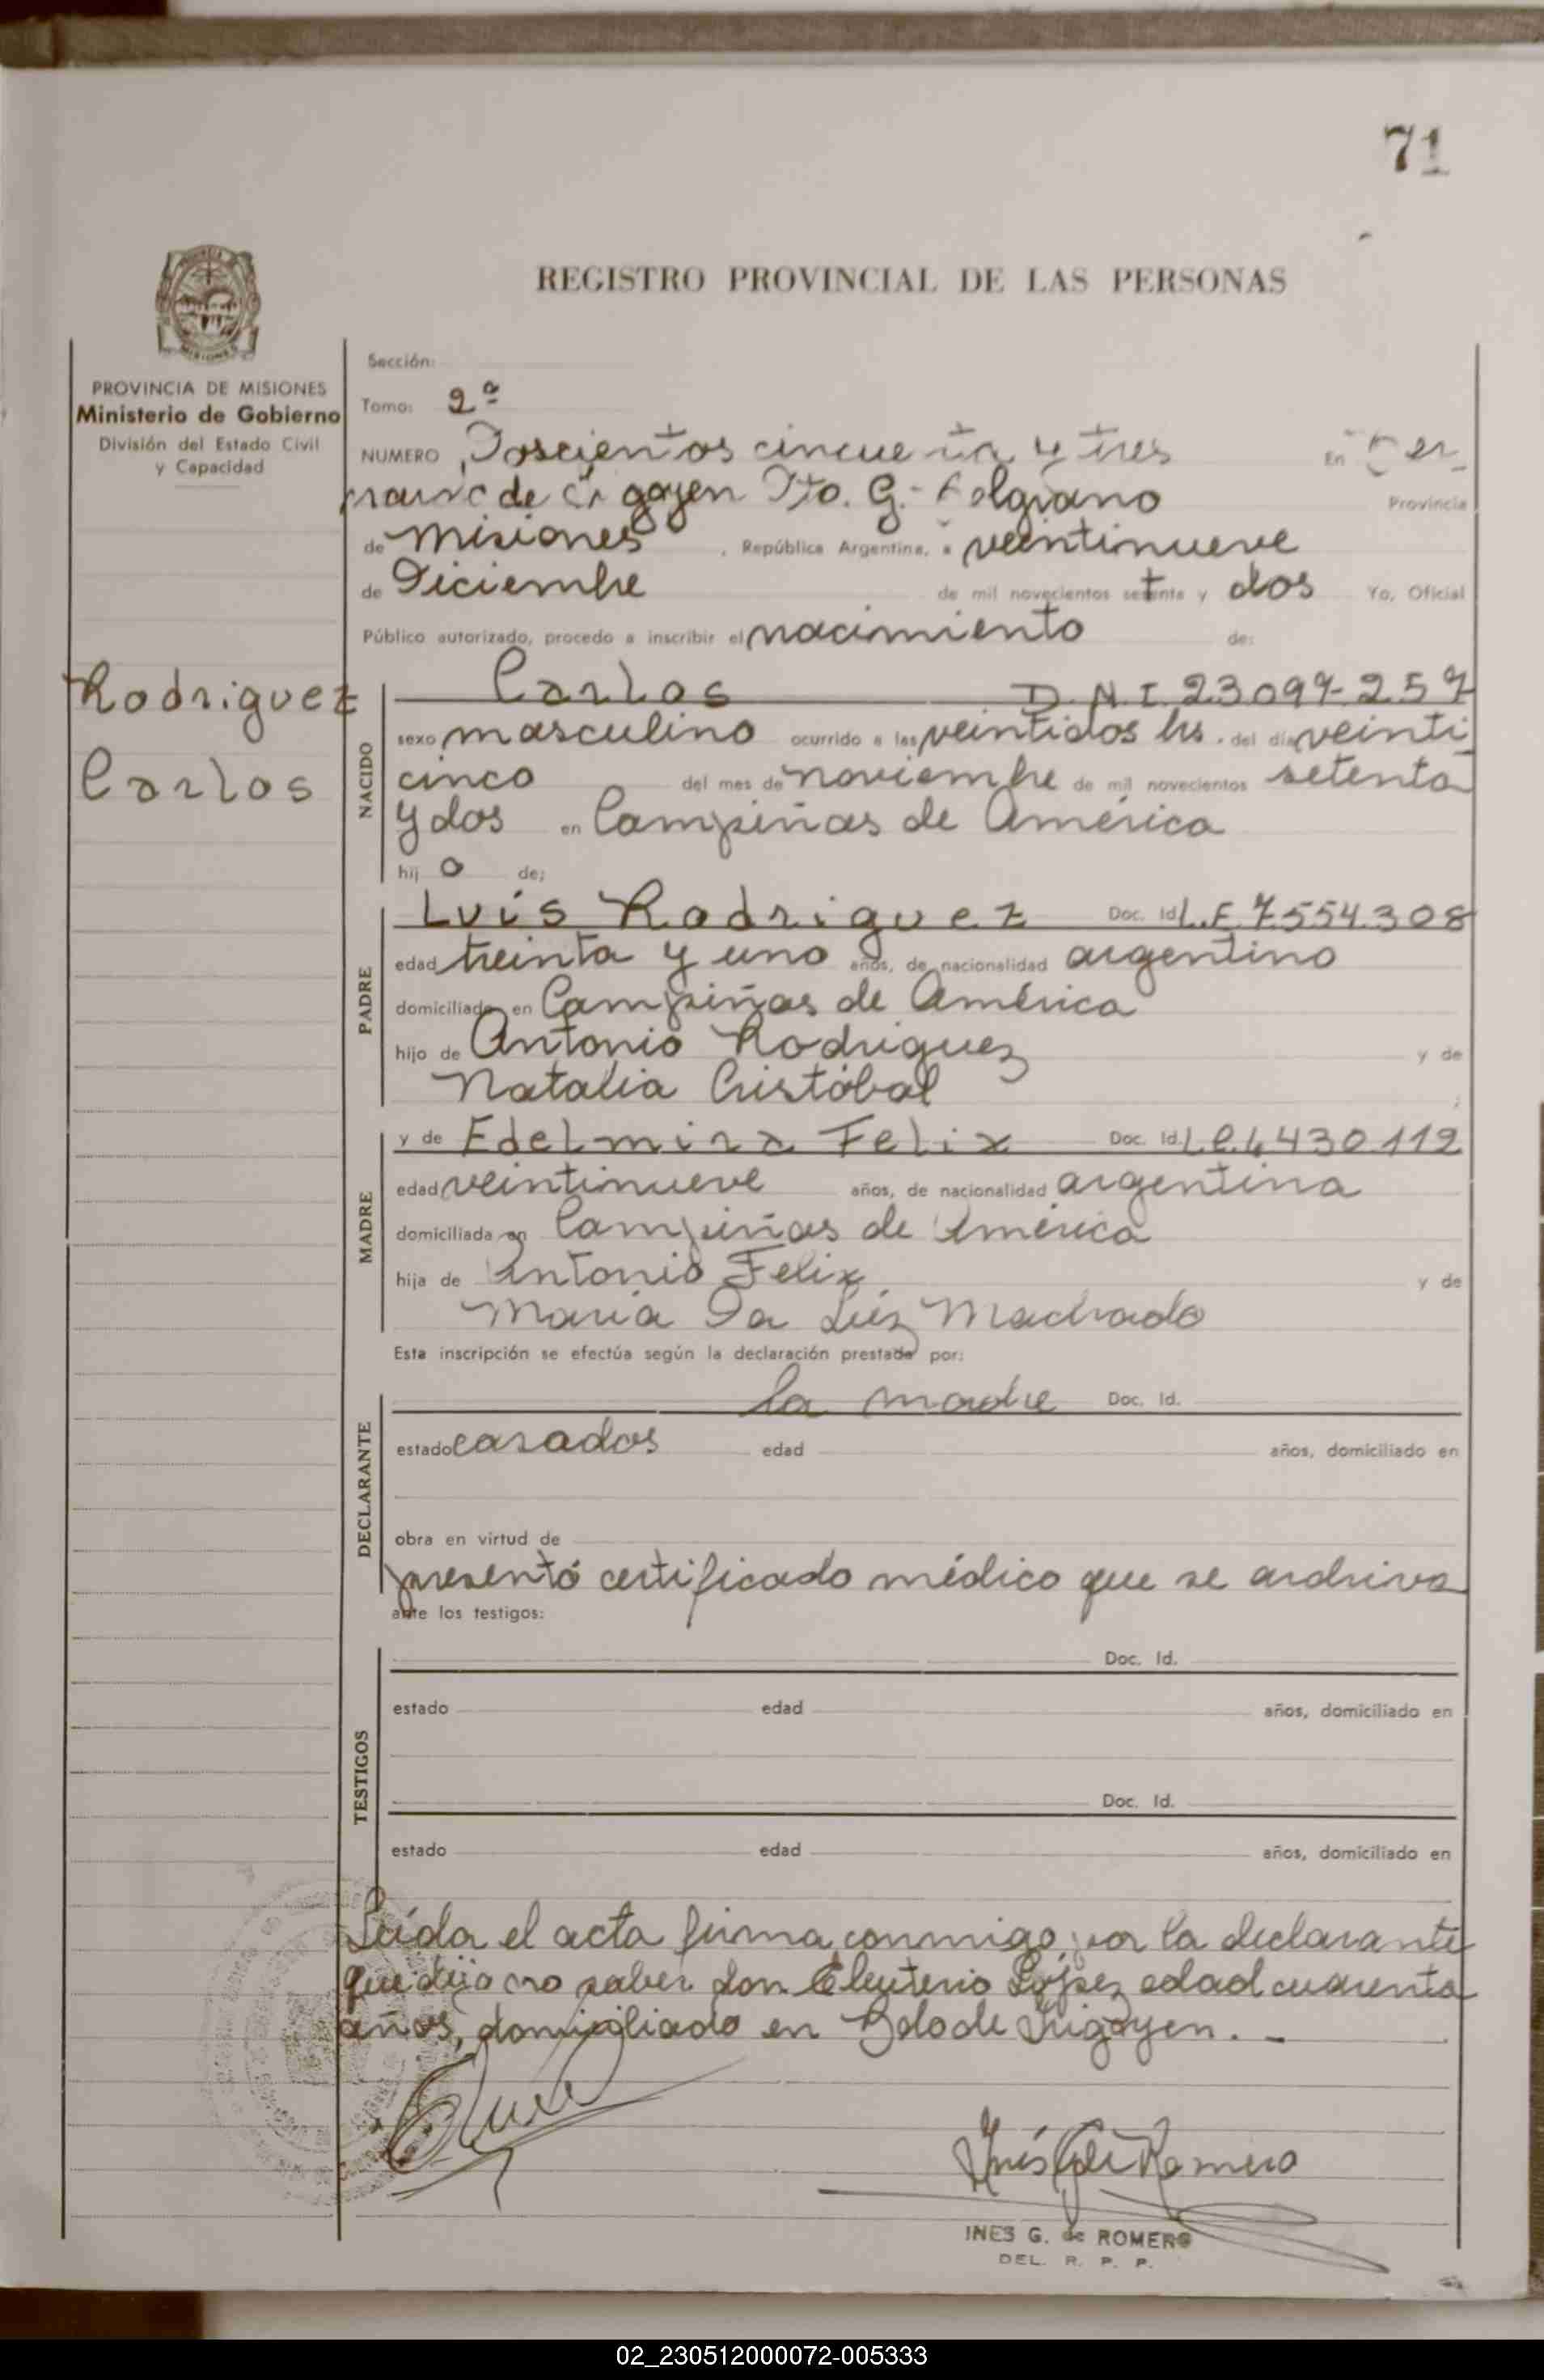 71
REGISTRO PROVINCIAL DE LAS PERSONAS
PROVINCIA DE MISIONES
Ministerio de Gobierno
División del Estado Civil
y Capacidad
Sección:
Tomo: 2º
NUMERO Doscientos cincuenta y tres En Ber
nardo de Irigoyen Dto. G. Belgrano Provincia
de Misiones, República Argentina, a veintinueve
de Diciembre de mil novecientos setenta y dos Yo, Oficial
Público autorizado, procedo a inscribir el nacimiento de:
Rodriguez
Carlos
NACIDO
Carlos D.N.I. 23.097.257
sexo masculino ocurrido a las veintidos hs. del día veinti
cinco del mes de noviembre de mil novecientos setenta
y dos en Campiñas de América
hij o de:
PADRE
Luis Rodriguez Doc. Id. L.E. 7.554.308
edad treinta y uno años, de nacionalidad argentino
domiciliado en Campiñas de América
hijo de Antonio Rodriguez y de
Natalia Cristóbal ;
MADRE
y de Edelmira Felix Doc. Id. L.C. 4430.112
edad veintinueve años, de nacionalidad argentina
domiciliada en Campiñas de América
hija de Antonio Felix y de
Maria Da Luz Machado
Esta inscripción se efectúa según la declaración prestada por:
DECLARANTE
la madre Doc. Id.
estado casados edad años, domiciliado en
obra en virtud de
presentó certificado médico que se archiva
ante los testigos:
TESTIGOS
Doc. Id.
estado edad años, domiciliado en
Doc. Id.
estado edad años, domiciliado en
Leída el acta firma conmigo por la declarante
que dijo no saber don Eleuterio López edad cuarenta
años, domiciliado en Bdo de Irigoyen. -
Inés G. de Romero
INES G. de ROMERO
DEL. R. P. P.
02_230512000072-005333